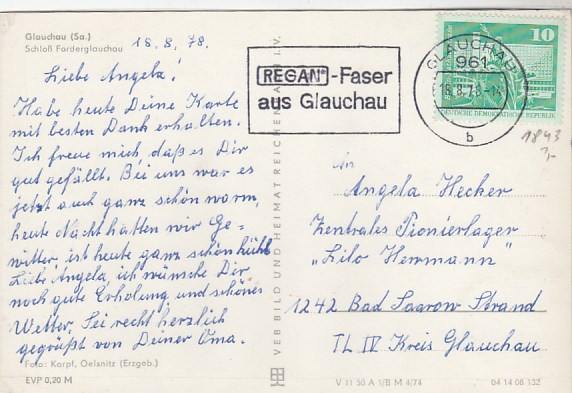 Glauchau (Sa.)
Schloß Forderglauchau
18.8.78.
Liebe Angela!
Habe heute Deine Karte
mit besten Dank erhalten.
Ich freue mich, daß es Dir
gut gefällt. Bei uns war es
jetzt auch ganz schön warm,
heute Nacht hatten wir Ge=
witter ist heute ganz schön kühl
Liebe Angela, ich wünsche Dir
noch gute Erholung und schönes
Wetter. Sei recht herzlich
gegrüßt von Deiner Oma.
Foto: Karpf, Oelsnitz (Erzgeb.)
EVP 0,20 M
VEB BILD UND HEIMAT REICHENBACH I. V.
REGAN®-Faser
aus Glauchau
GLAUCHAU
961
18.8.78-14
b
10
DEUTSCHE DEMOKRATISCHE REPUBLIK
1843
1,-
An
Angela Hecker
Zentrales Pionierlager
"Lilo Herrmann"
1242 Bad Saarow Strand
TL IV Kreis Glauchau
V 11 50 A 1/B M 4/74
04 14 08 132